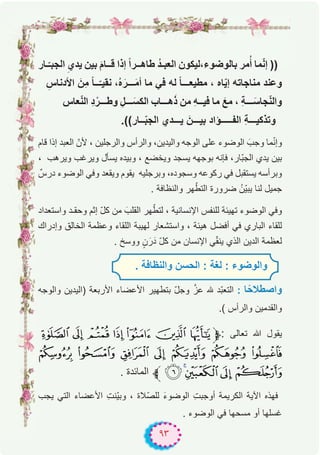 (( إنَّما أُمر بالوضوء،ليكون العبـدُ طاهــراً إذا قــامَ بين يدي الجبـّـار
وعند مناجاته إيّاه ، مطيعـــاً له في ما أمَـــرَهُ، نقيـّــاً مِنَ الأدناسِ
والنَّجاسَـــة ، مَعَ ما فيــهِ من ذَهـــابِ الكسَـــلِ وطــرْدِ النُّعاس
وتذْكيـــةِ الفـــؤاد بيــنَ يـــدي الجَبَّــار)).
وإنَّما وجبَ الوضوء على الوجه واليدين، والرأس والرجلين ، لأنّ العبد إذا قام
بين يدي الجبّار، فإنه بوجهه يسجد ويخضع ، وبيده يسأل ويرغب ويرهب ،
وبرأسه يستقبل في ركوعه وسجوده، وبرجليه يقوم ويقعد وفي الوضوء درسٌ
جميل لنا يبيّنُ ضرورة التطّهر والنظافة .
وفي الوضوء تهيئة للنفس الإنسانية ، لتطُّهر القلبَ من كلِّ إثم وحقـد واستعداد
للقاء الباري في أفضل هيئة ، واستشعار لهيبة اللقاء وعظمة الخالق وإدراك
لعظمة الدين الذي ينقّي الإنسان من كلّ دَرَنٍ ووسخ .
والوضوء : لغة : الحسن والنظافة .
واصطلاحًا : التعبّد لله عزَّ وجلَّ بتطهير الأعضاء الأربعة (اليدين والوجه
والقدمين والرأس ).
يقول الله تعالى : ﴿ يَٰٓأَيُّهَا ٱلَّذِينَ ءَامَنُوٓا۟ إِذَا قُمْتُمْ إِلَى ٱلصَّلَوٰةِ
فَٱغْسِلُوا۟ وُجُوهَكُمْ وَأَيْدِيَكُمْ إِلَى ٱلْمَرَافِقِ وَٱمْسَحُوا۟ بِرُءُوسِكُمْ
وَأَرْجُلَكُمْ إِلَى ٱلْكَعْبَيْنِ ٦ ﴾ المائدة .
فهذه الآية الكريمة أوجبت الوضوءَ للصّلاة ، وبيّنت الأعضاء التي يجب
غسلها أو مسحها في الوضوء .
٩٣